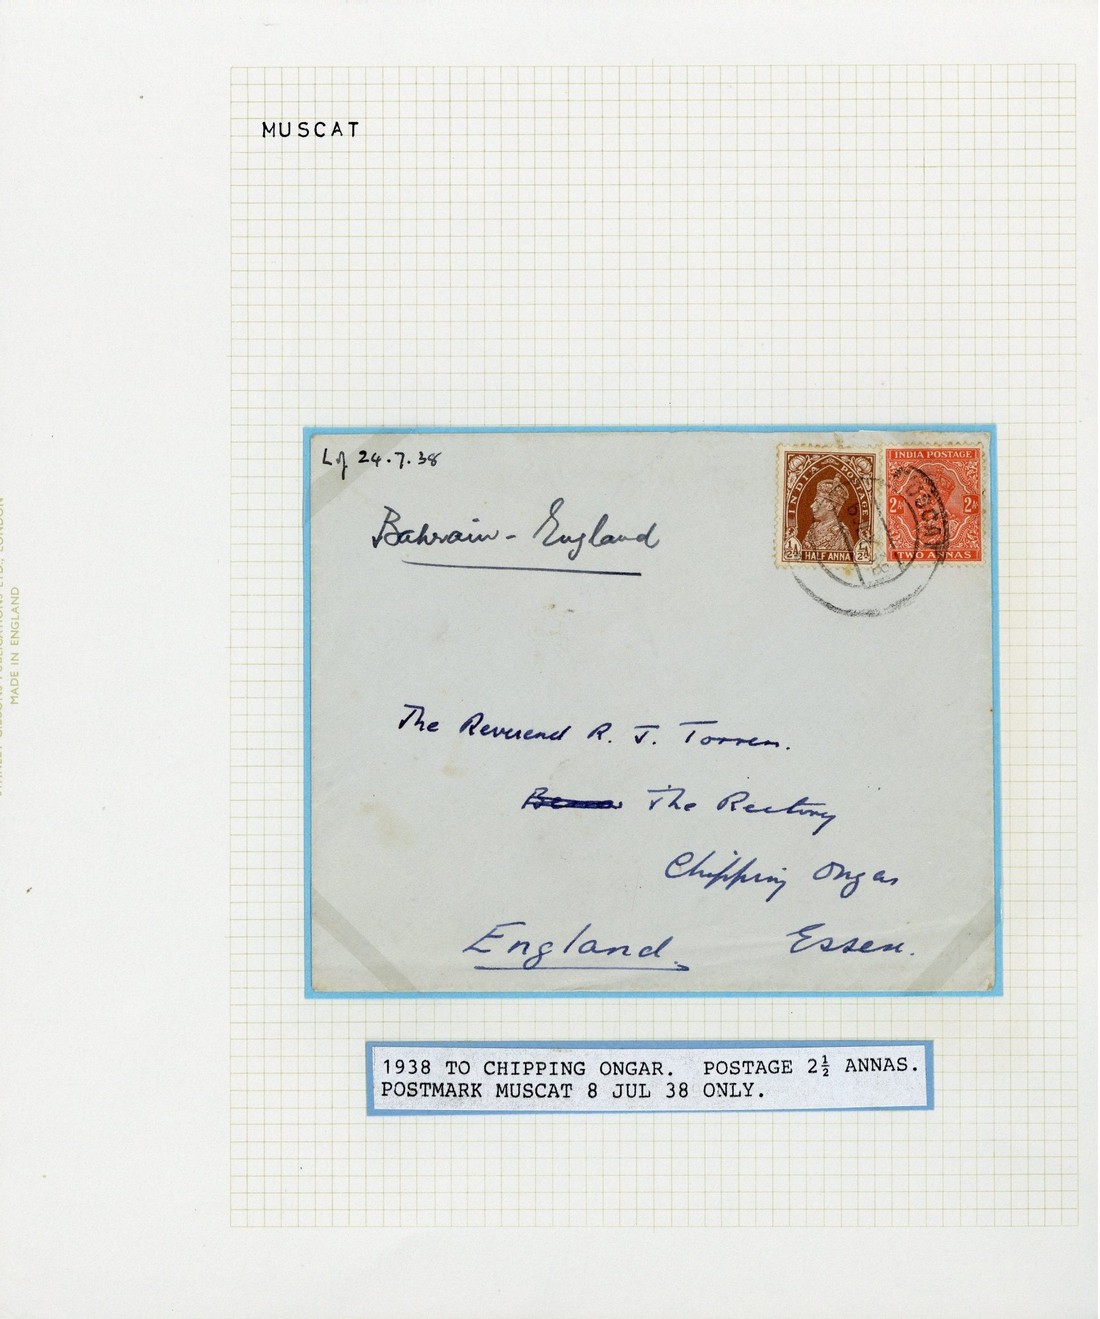 MUSCAT
MADE IN ENGLAND
24.7.38
Bahrain - England
INDIA POSTAGE
HALF ANNA
INDIA POSTAGE
2 As 2 As
TWO ANNAS
The Reverend R. J. Torrens.
The Rectory
Chipping Ongar
England. Essex.
1938 TO CHIPPING ONGAR. POSTAGE 2½ ANNAS.
POSTMARK MUSCAT 8 JUL 38 ONLY.